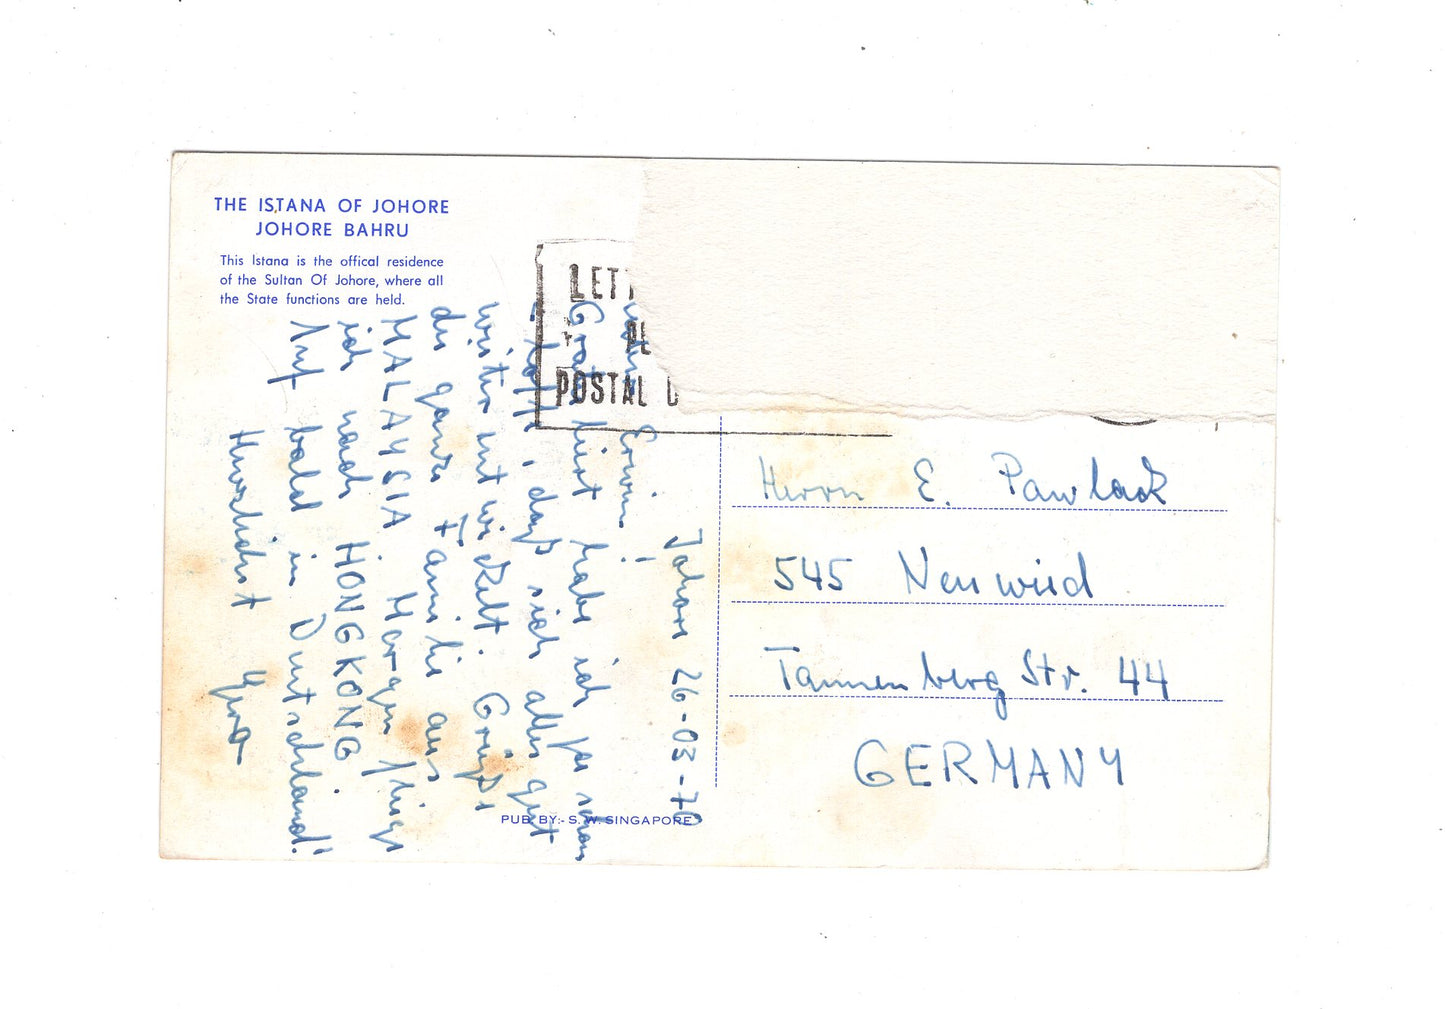 THE ISTANA OF JOHORE
JOHORE BAHRU
This Istana is the offical residence
of the Sultan Of Johore, where all
the State functions are held.
LETT
POSTAL
Johore 26-03-70
Erwin!
habe ich ja schon
, daß sich alles gut
weiter entwickelt. Grüße
die ganze Familie aus
MALAYSIA. Morgen fliege
ich nach HONGKONG
Auf bald in Deutschland!
Herzlichst
PUB. BY:- S. W. SINGAPORE
Herrn E. Pawlack
545 Neuwied
Tannenberg Str. 44
GERMANY